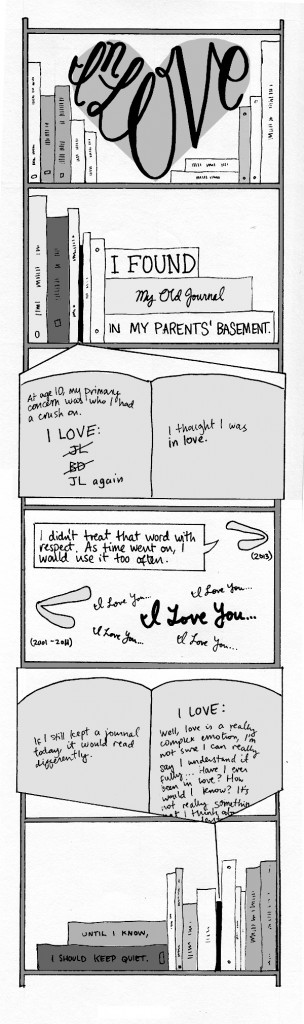 In LOVE
I FOUND
My Old Journal
IN MY PARENTS' BASEMENT.
At age 10, my primary
concern was who I had
a crush on.
I LOVE:
JL
BD
JL again
I thought I was
in love.
I didn't treat that word with
respect. As time went on, I
would use it too often.
(2013)
I Love You...
I Love You...
I Love You...
I Love You...
I Love You...
(2001-2011)
If I still kept a journal
today, it would read
differently.
I LOVE:
Well, love is a really
complex emotion, I'm
not sure I can really
say I understand it
fully... Have I ever
been in love? How
would I know? It's
not really something
that I think
UNTIL I KNOW,
I SHOULD KEEP QUIET.